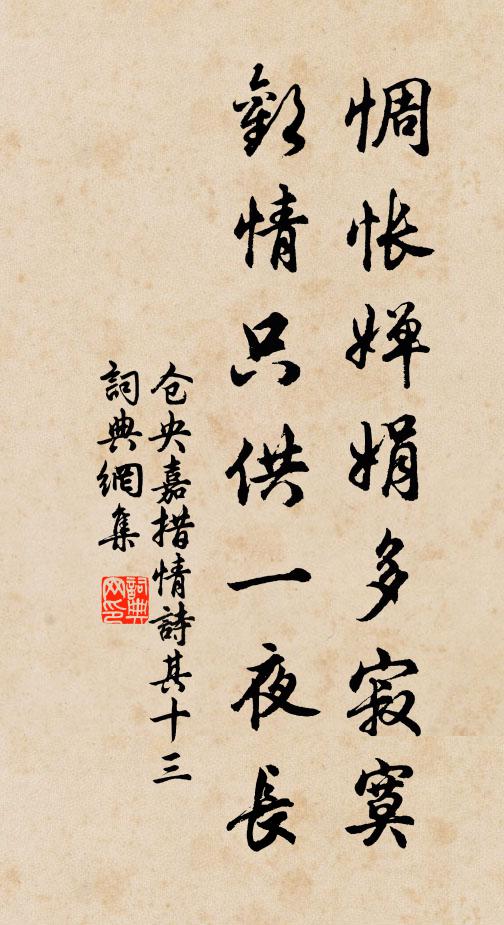 惆怅婵娟多寂寞
歡情只供一夜長
仓央嘉措情詩其十三
詞典網集
詞典
网印